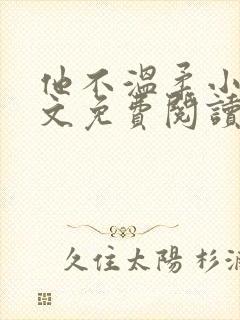 他不溫柔小
文免費閱讀
久住太陽 杉浦